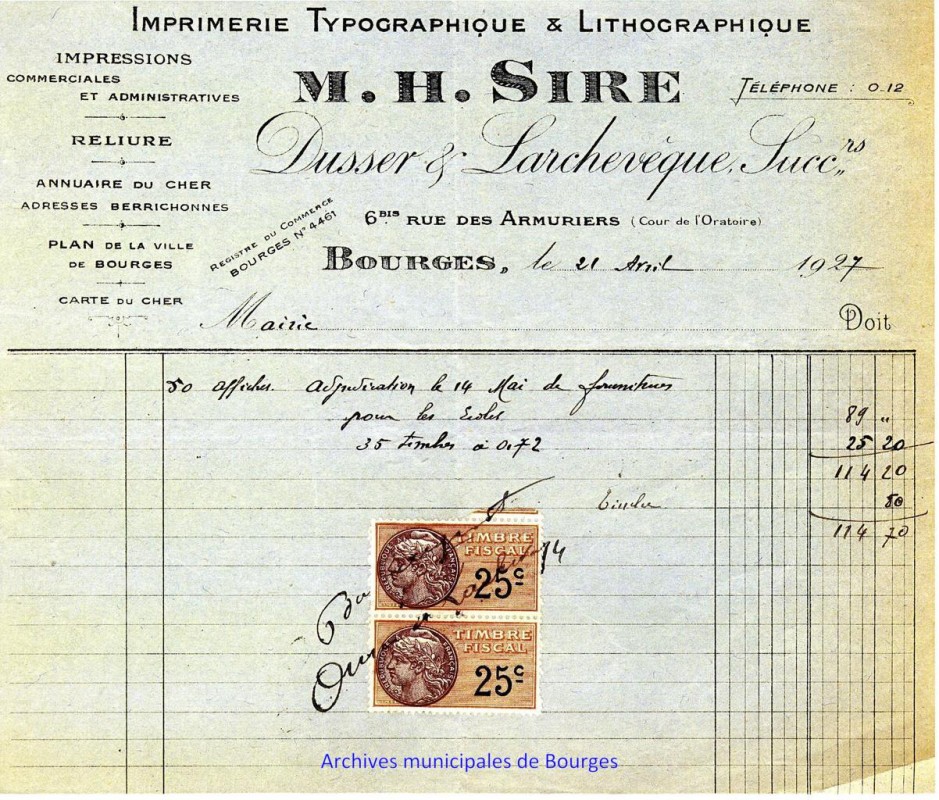 IMPRIMERIE TYPOGRAPHIQUE & LITHOGRAPHIQUE
IMPRESSIONS
COMMERCIALES
ET ADMINISTRATIVES
RELIURE
ANNUAIRE DU CHER
ADRESSES BERRICHONNES
PLAN DE LA VILLE
DE BOURGES
CARTE DU CHER
M. H. SIRE
TÉLÉPHONE : 0-12
Dusser & Larchevêque, Succrs
REGISTRE DU COMMERCE
BOURGES N° 4461
6BIS RUE DES ARMURIERS (Cour de l'Oratoire)
BOURGES, le 21 Avril 1927
Mairie Doit
50 affiches Adjudication le 14 Mai de fournitures
pour les Ecoles 89 "
35 timbres à 0.72 25 20
114 20
Timbre 50
114 70
TIMBRE
FISCAL
25c
RÉPUBLIQUE FRANÇAISE
TIMBRE
FISCAL
25c
RÉPUBLIQUE FRANÇAISE
Archives municipales de Bourges